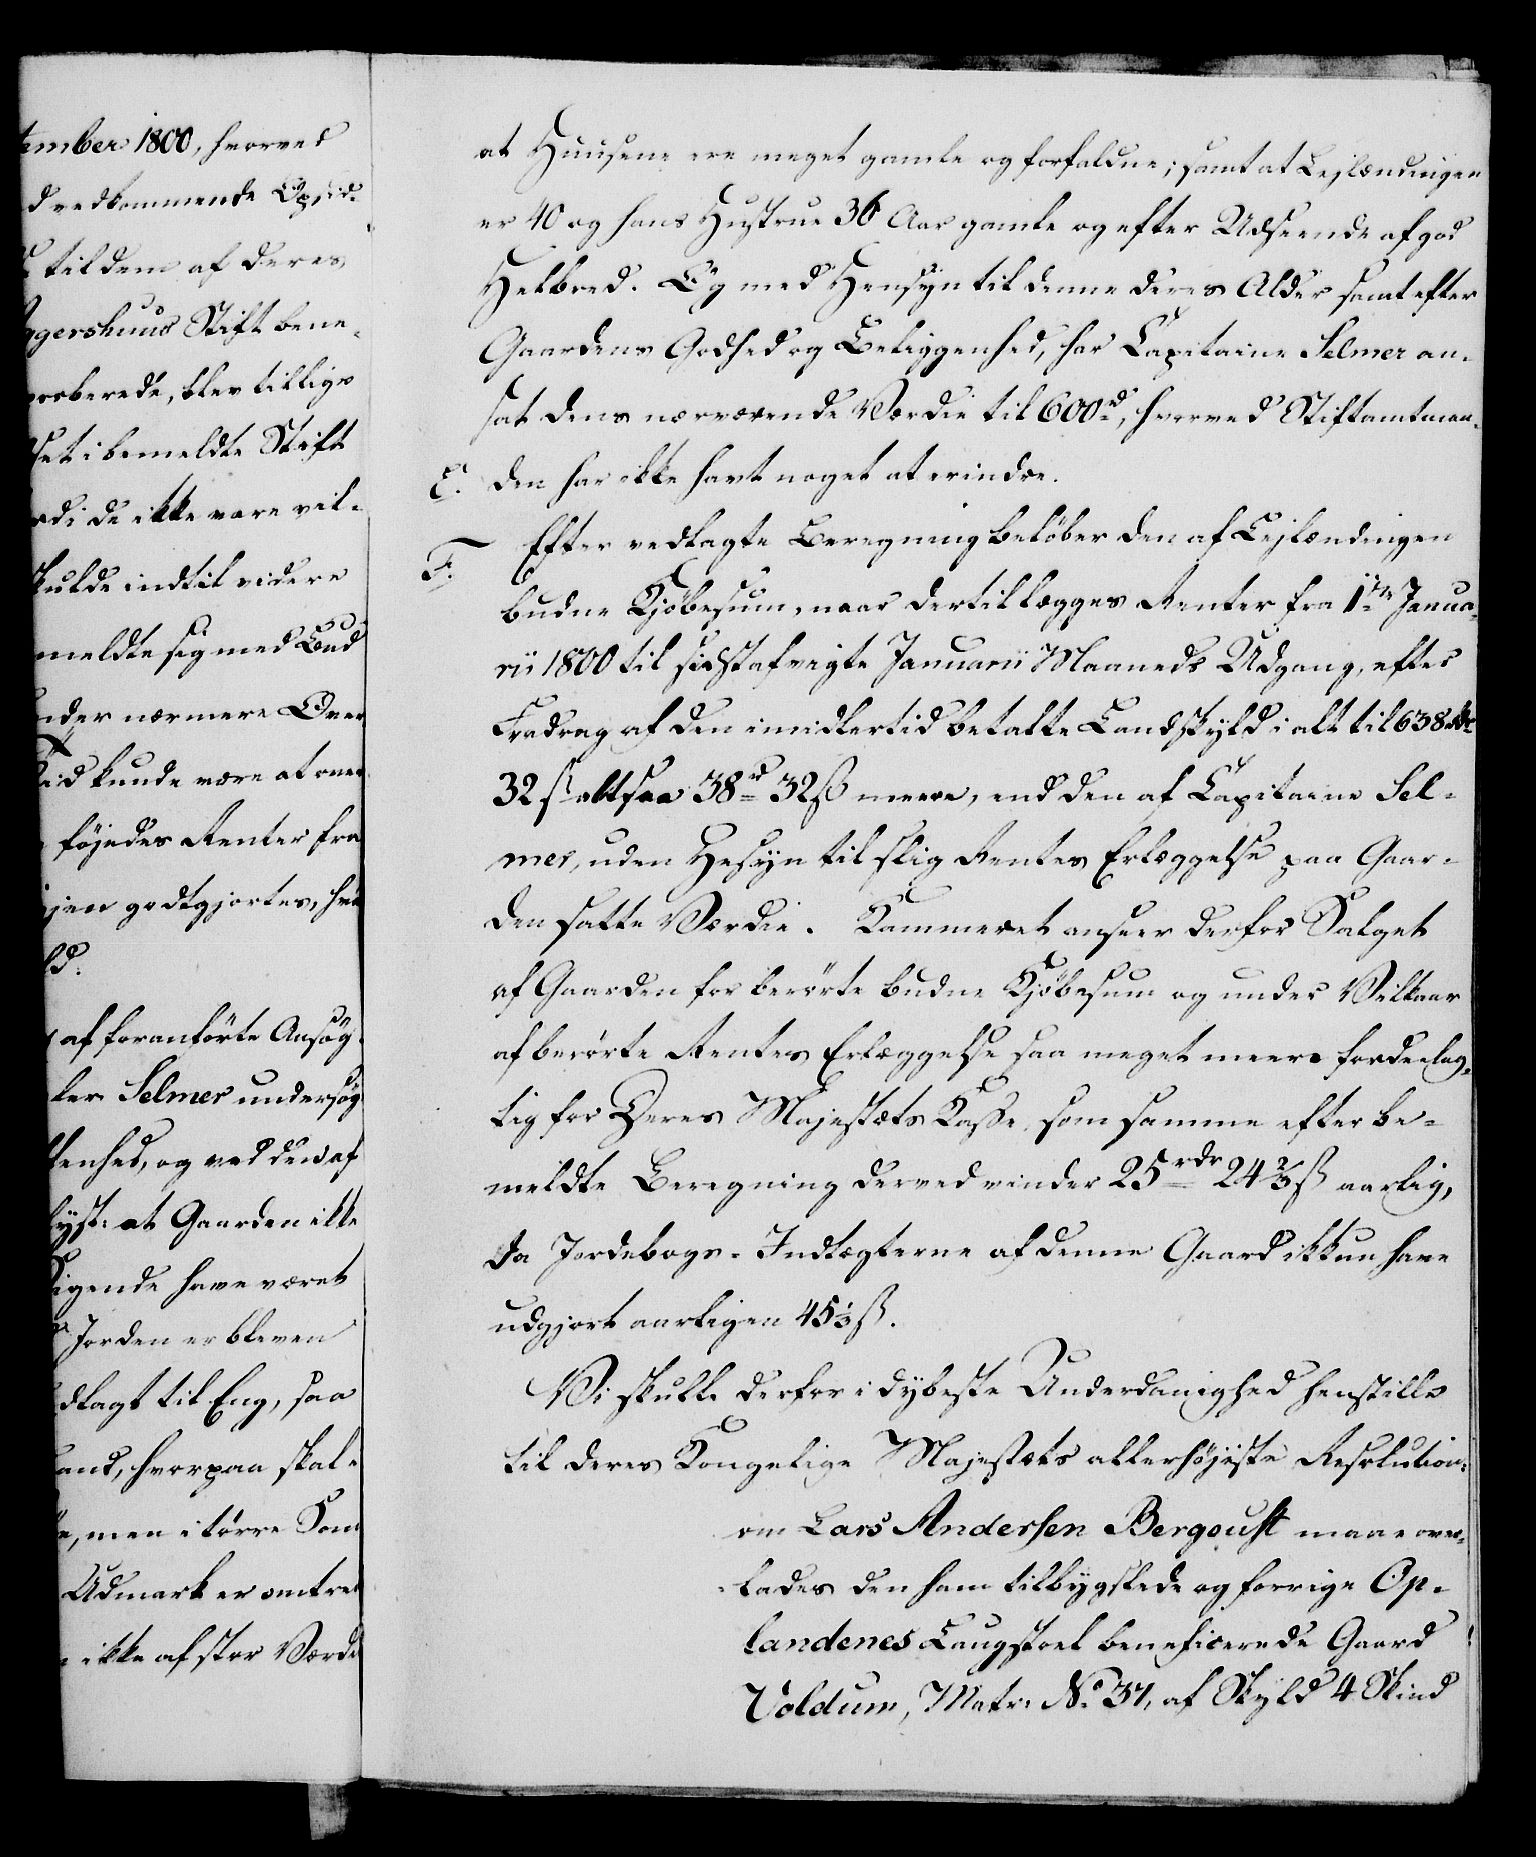 tember 1800, hvorved
d vedkommende Opsid-
til dem af deres
ggershuus Stift bene-
orberede, blev tillige
set i bemeldte Stift
rdi de ikke vare vil-
skulde indtil videre
meldte sig med Bud
nder nærmere Over
tid kunde være at over
føjedes Renter fra
jen godtgjortes, hvi
ld.
af foranførte Ansøg-
ler Selmer undersøg
tenhed, og ved den af
lyst: at Gaarden ikke
igende have været
Jorden er bleven
dlagt til Eng, saa
and, hvorpaa skal-
e, men i tørre Som
Udmark er omtret
ikke af stor Værdi
at Huusene ere meget gamle og forfaldne; samt at Lejlændingen
er 40 og hans Hustrue 36 Aar gamle og efter Udseende af god
Helbred. Og med Hensyn til denne deres Alder samt efter
Gaardens Godhed og Beliggenhed, har Capitaine Selmer an-
sat dens nærværende Værdie til 600rd, hvorved Stiftamtman-
E. den har ikke havt noget at erindre.
F. Efter vedlagte Beregning beløber den af Lejlændingen
budne Kjøbesum, naar dertil lægges Renter fra 1ste Janua-
rii 1800 til sidstafvigte Januarii Maaneds Udgang, efter
Fradrag af den imidlertid betalte Landskyld i alt til 638 rdr
32 ß altsaa 38rd 32ß meere, end den af Capitaine Sel-
mer, uden Hesyn til slig Rentes Erlæggelse paa Gaar-
den satte Værdie. Kammeret anseer derfor Salget
af Gaarden for berørte budne Kjøbesum og under Vilkaar
af berørte Rentes Erlæggelse saa meget meere fordeelag-
tig for Deres Majestæts Kasse, som samme efter be-
meldte Beregning derved vinder 25rdr 24⅔ß aarlig,
da Jordebogs-Indtægterne af denne Gaard ikkun have
udgjort aarligen 45⅓ß.
Vi skulle derfor i dybeste Underdanighed henstille
til Deres Kongelige Majestæts allerhøjeste Resolution:
om Lars Andersen Bergoust maae over-
lades den ham tilbygslede og forrige Op-
landenes Laugstoel beneficerede Gaard
Voldum, Matr: No 37, af Skyld 4 Skind